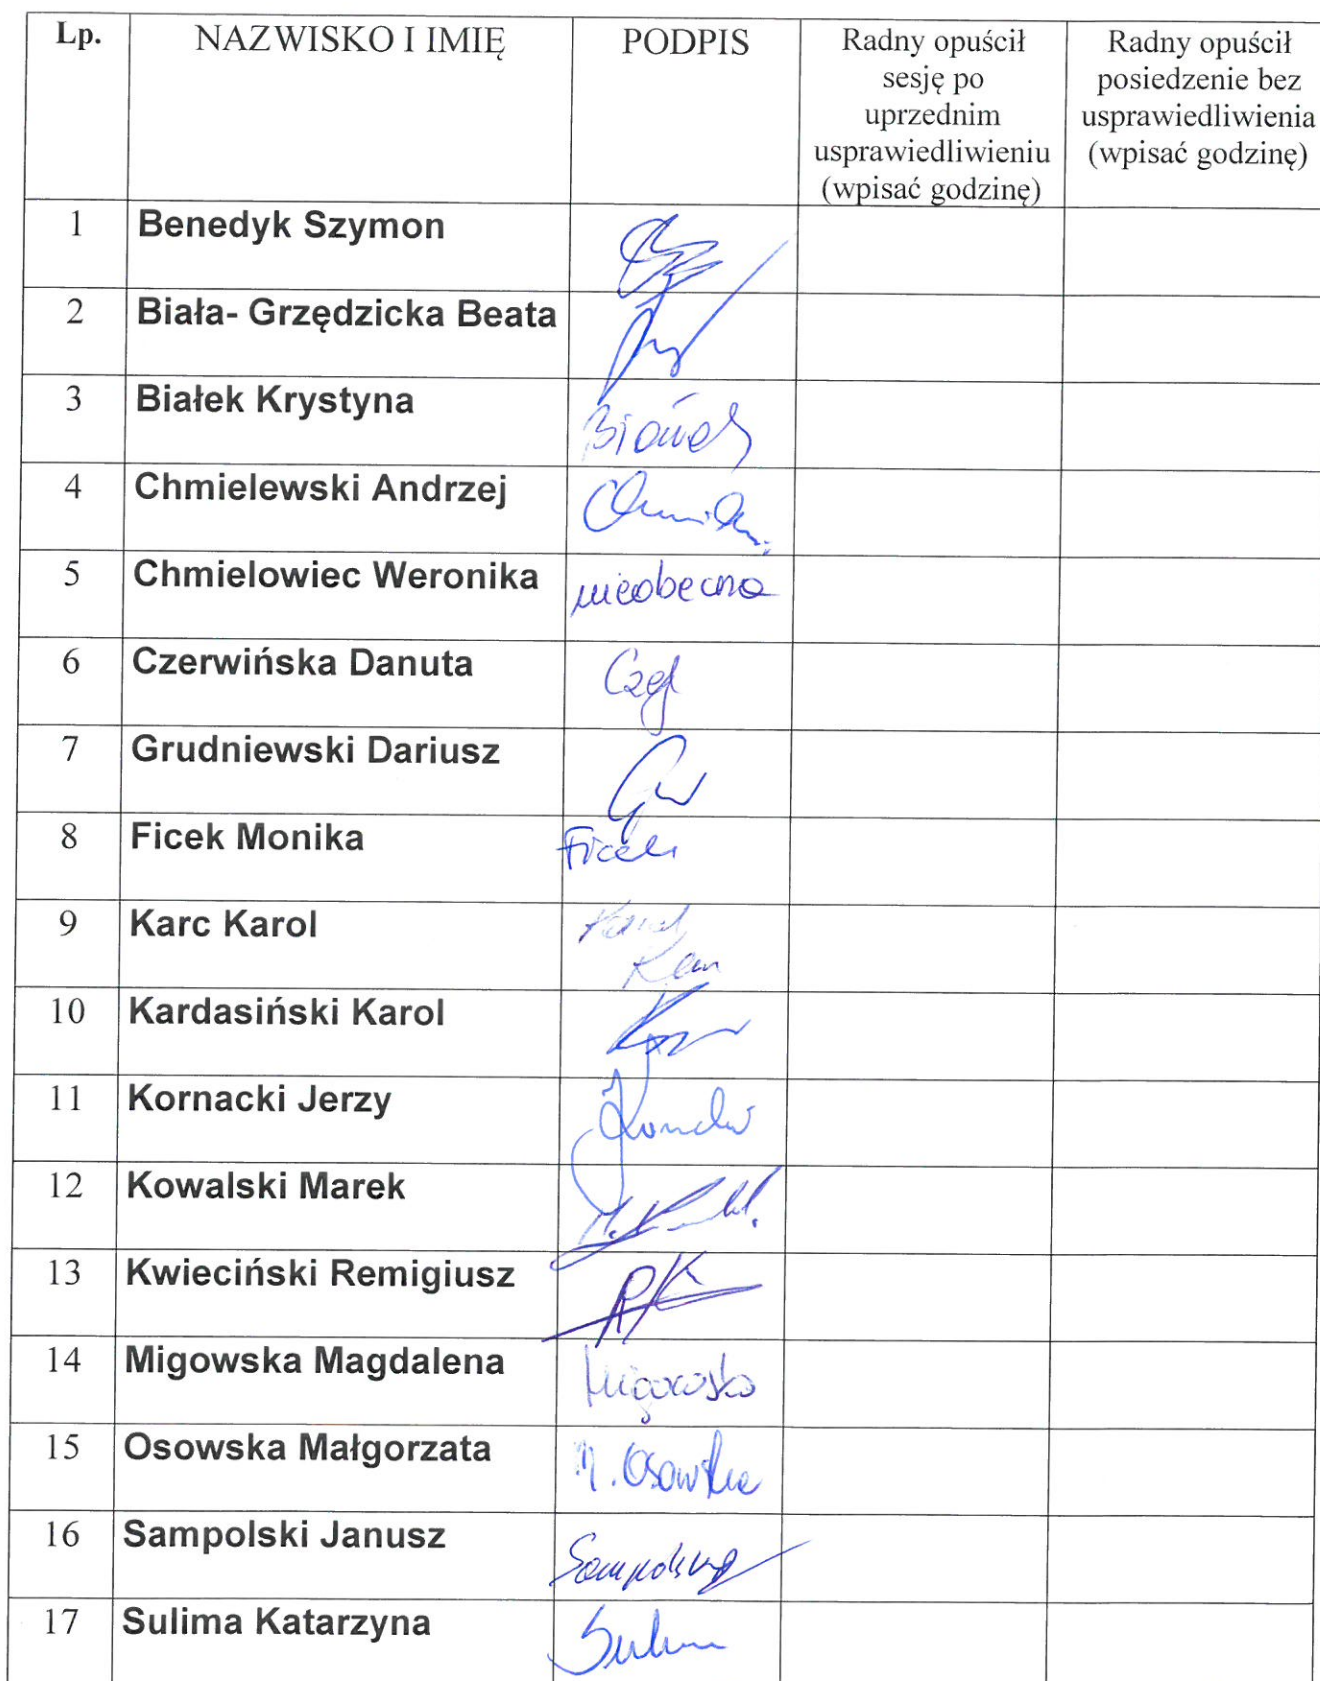 Lp. NAZWISKO I IMIĘ PODPIS Radny opuścił Radny opuścił
sesję po posiedzenie bez
uprzednim usprawiedliwienia
usprawiedliwieniu (wpisać godzinę)
(wpisać godzinę)
1 Benedyk Szymon
2 Biała- Grzędzicka Beata
3 Białek Krystyna
4 Chmielewski Andrzej
5 Chmielowiec Weronika nieobecna
6 Czerwińska Danuta
7 Grudniewski Dariusz
8 Ficek Monika Ficek
9 Karc Karol Karol
10 Kardasiński Karol
11 Kornacki Jerzy
12 Kowalski Marek
13 Kwieciński Remigiusz
14 Migowska Magdalena Migowska
15 Osowska Małgorzata M. Osowska
16 Sampolski Janusz Sampolski
17 Sulima Katarzyna